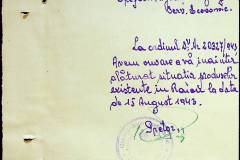 Serv. Economic.
La ordinul D. Nr. 20327/943
Avem onoare a vă înainta
alăturat situația produselor
existente în Raion la data
de 15 August 1943.
Pretor,